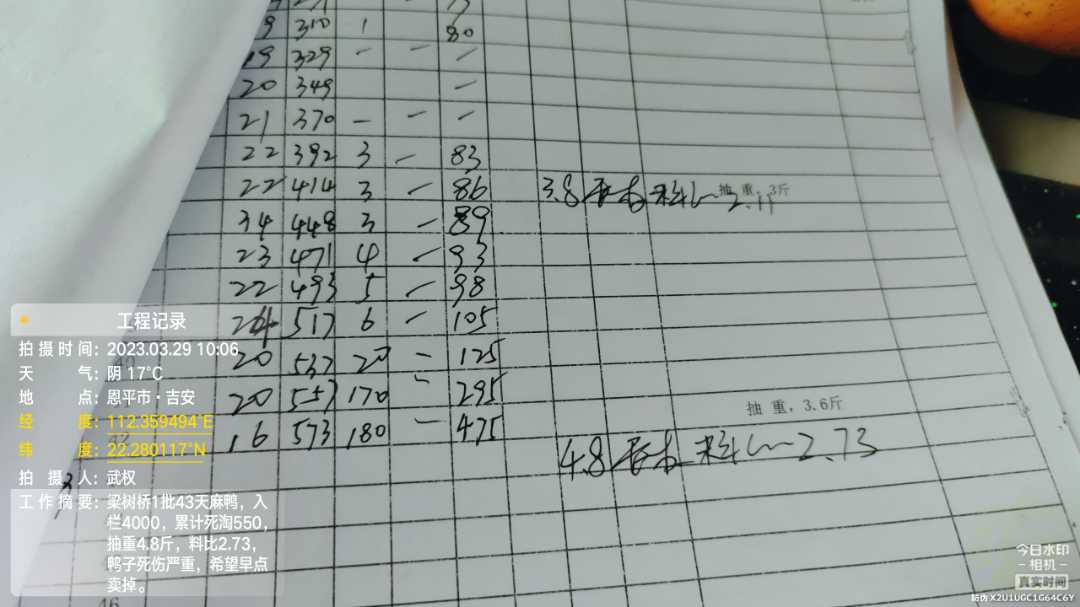 9 310 1 80
19 329 - - -
20 349 -
21 370 - - -
22 392 3 - 83
22 414 3 - 86 3.8 料 2.11
抽重,3斤
34 448 3 - 89
23 471 4 - 93
22 493 5 - 98
24 517 6 - 105
20 537 20 - 125
20 557 170 - 295
抽重,3.6斤
16 573 180 - 475
4.8 料 2.73
46
工程记录
拍摄时间:2023.03.29 10:06
天气:阴 17℃
地点:恩平市·吉安
经度:112.359494°E
纬度:22.280117°N
拍摄人:武权
工作摘要:梁树桥1批43天麻鸭,入
栏4000,累计死淘550,
抽重4.8斤,料比2.73,
鸭子死伤严重,希望早点
卖掉。
今日水印
-相机-
真实时间
防伪 X2U1UGC1G64C6Y